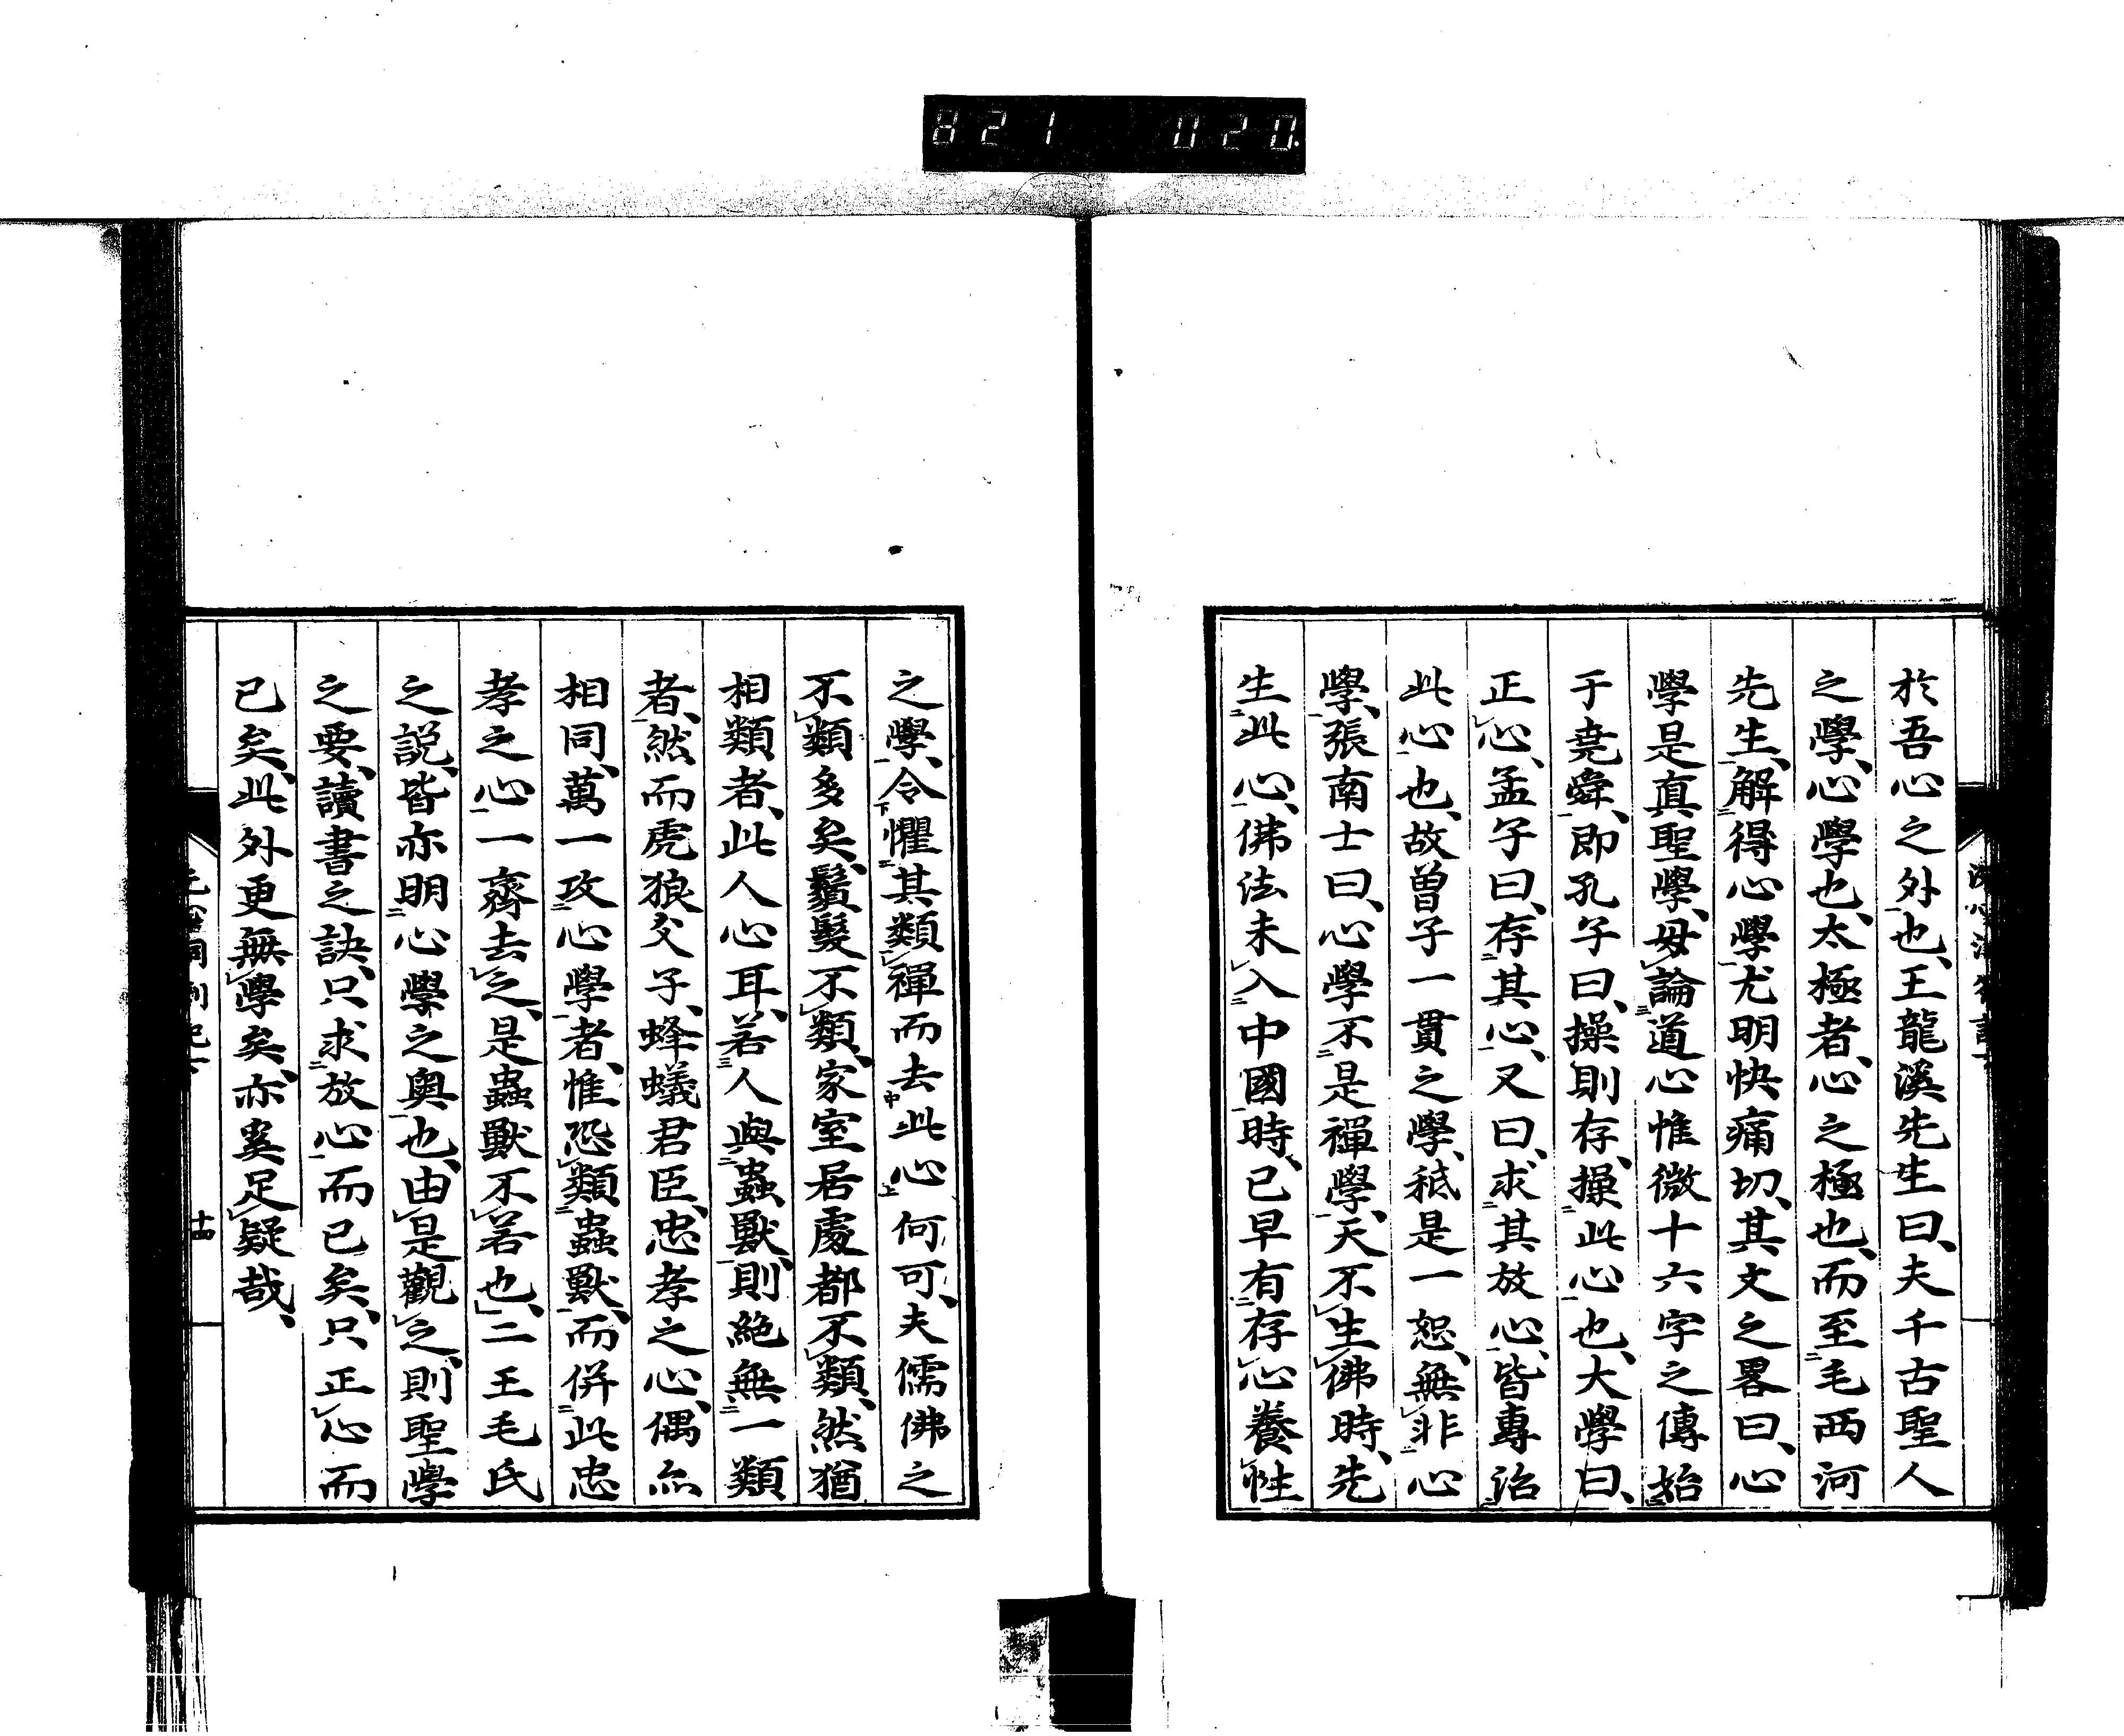 821 020
於吾心之外也、王龍溪先生曰、夫千古聖人
之學、心學也、太極者、心之極也、而至毛西河
先生、解得心學尤明快痛切、其文之畧曰、心
學是真聖學、毋論道心惟微十六字之傳始
于堯舜、即孔子曰、操則存、操此心也、大學曰、
正心、孟子曰、存其心、又曰、求其放心、皆專治
此心也、故曾子一貫之學、秪是一恕、無非心
學、張南士曰、心學不是禪學、天不生佛時、先
生此心、佛法未入中國時、已早有存心養性
之學、令懼其類禪而去此心何可、夫儒佛之
不類多矣、鬚髮不類、家室居處都不類、然猶
相類者、此人心耳、若人與蟲獸、則絕無一類
者、然而虎狼父子、蜂蟻君臣、忠孝之心、偶亦
相同、萬一攻心學者、惟恐類蟲獸、而併此忠
孝之心一齊去之、是蟲獸不若也、二王毛氏
之説、皆亦明心學之奥也、由是觀之、則聖學
之要、讀書之訣、只求放心而已矣、只正心而
已矣、此外更無學矣、亦奚足疑哉、
十四